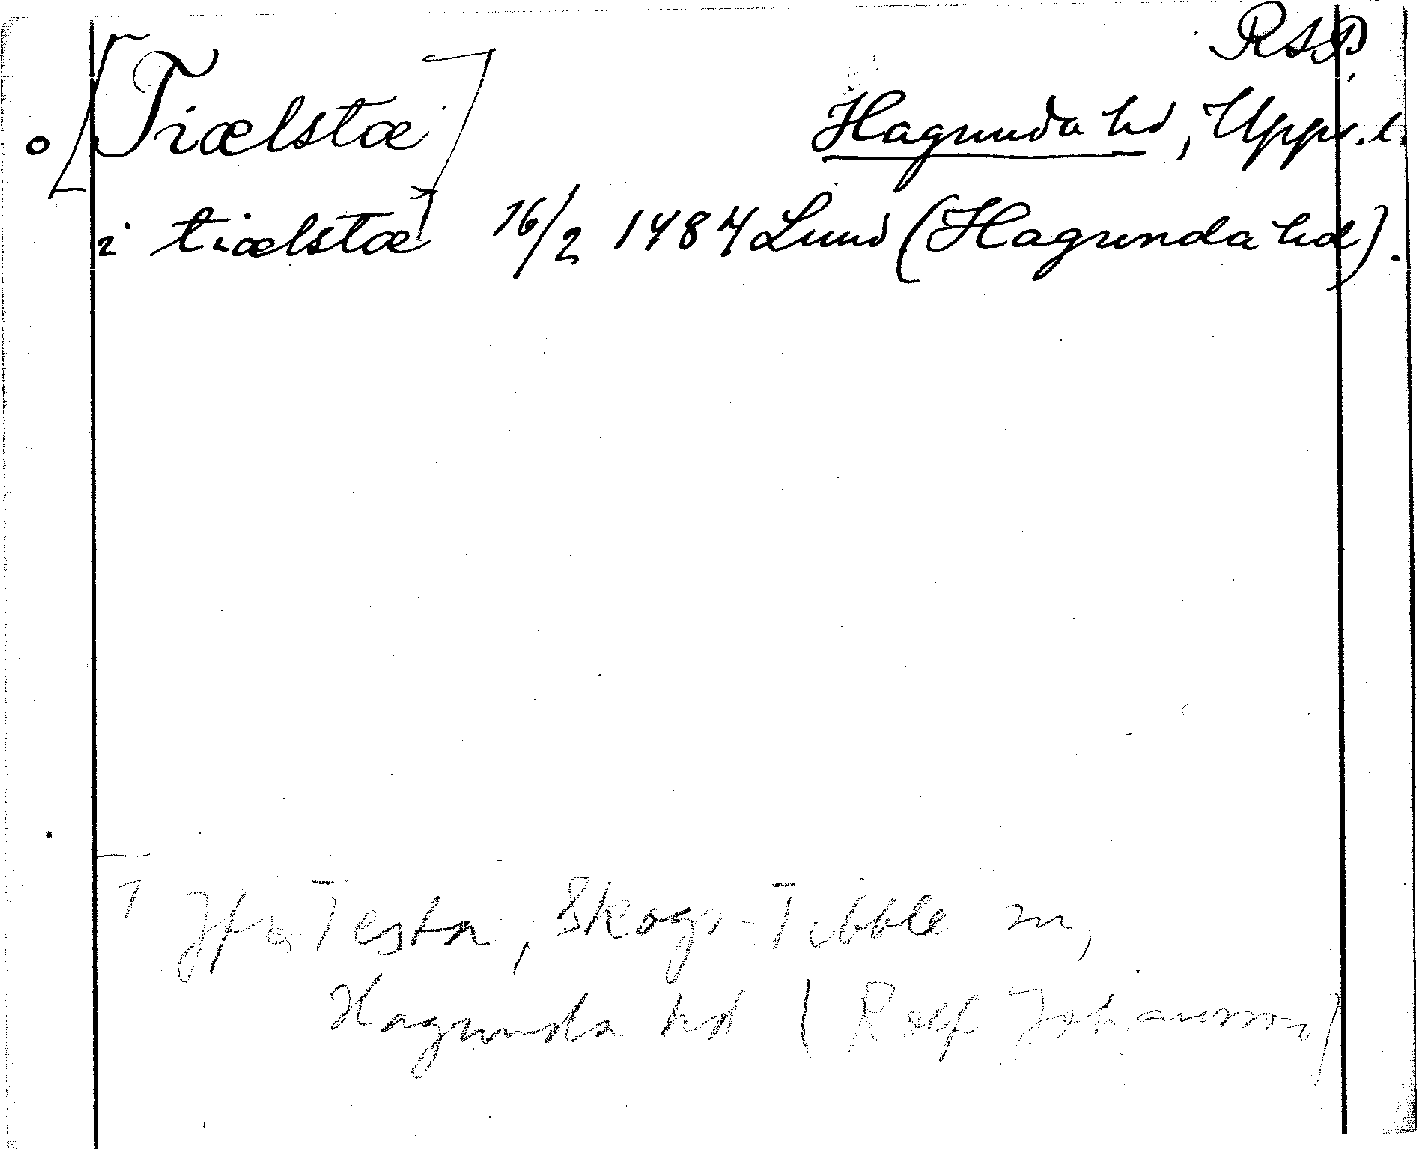 RAP.
o [Tiælstæ] Hagunda hd, Upps. l.
i tiælstæ ⁷ 16/2 1484 Lund (Hagunda hd).
⁷ Jfr Testa, Skogs-Tibble sn,
Hagunda hd (Rolf Johansson)